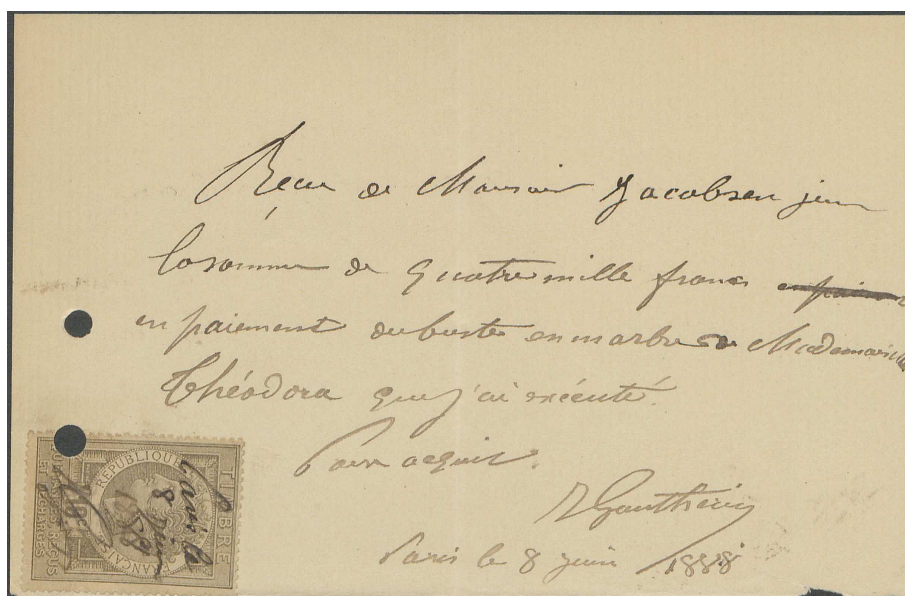 Reçu de Monsieur Jacobsen jeun
la somme de quatre mille francs
en paiement du buste en marbre de Mademoiselle
Théodora que j'ai exécuté.
Pour acquit.
Gautherin
Paris le 8 juin 1888
TIMBRE
RÉPUBLIQUE FRANÇAISE
QUITTANCES REÇUS
ET DÉCHARGES
10
Paris le
8 Juin